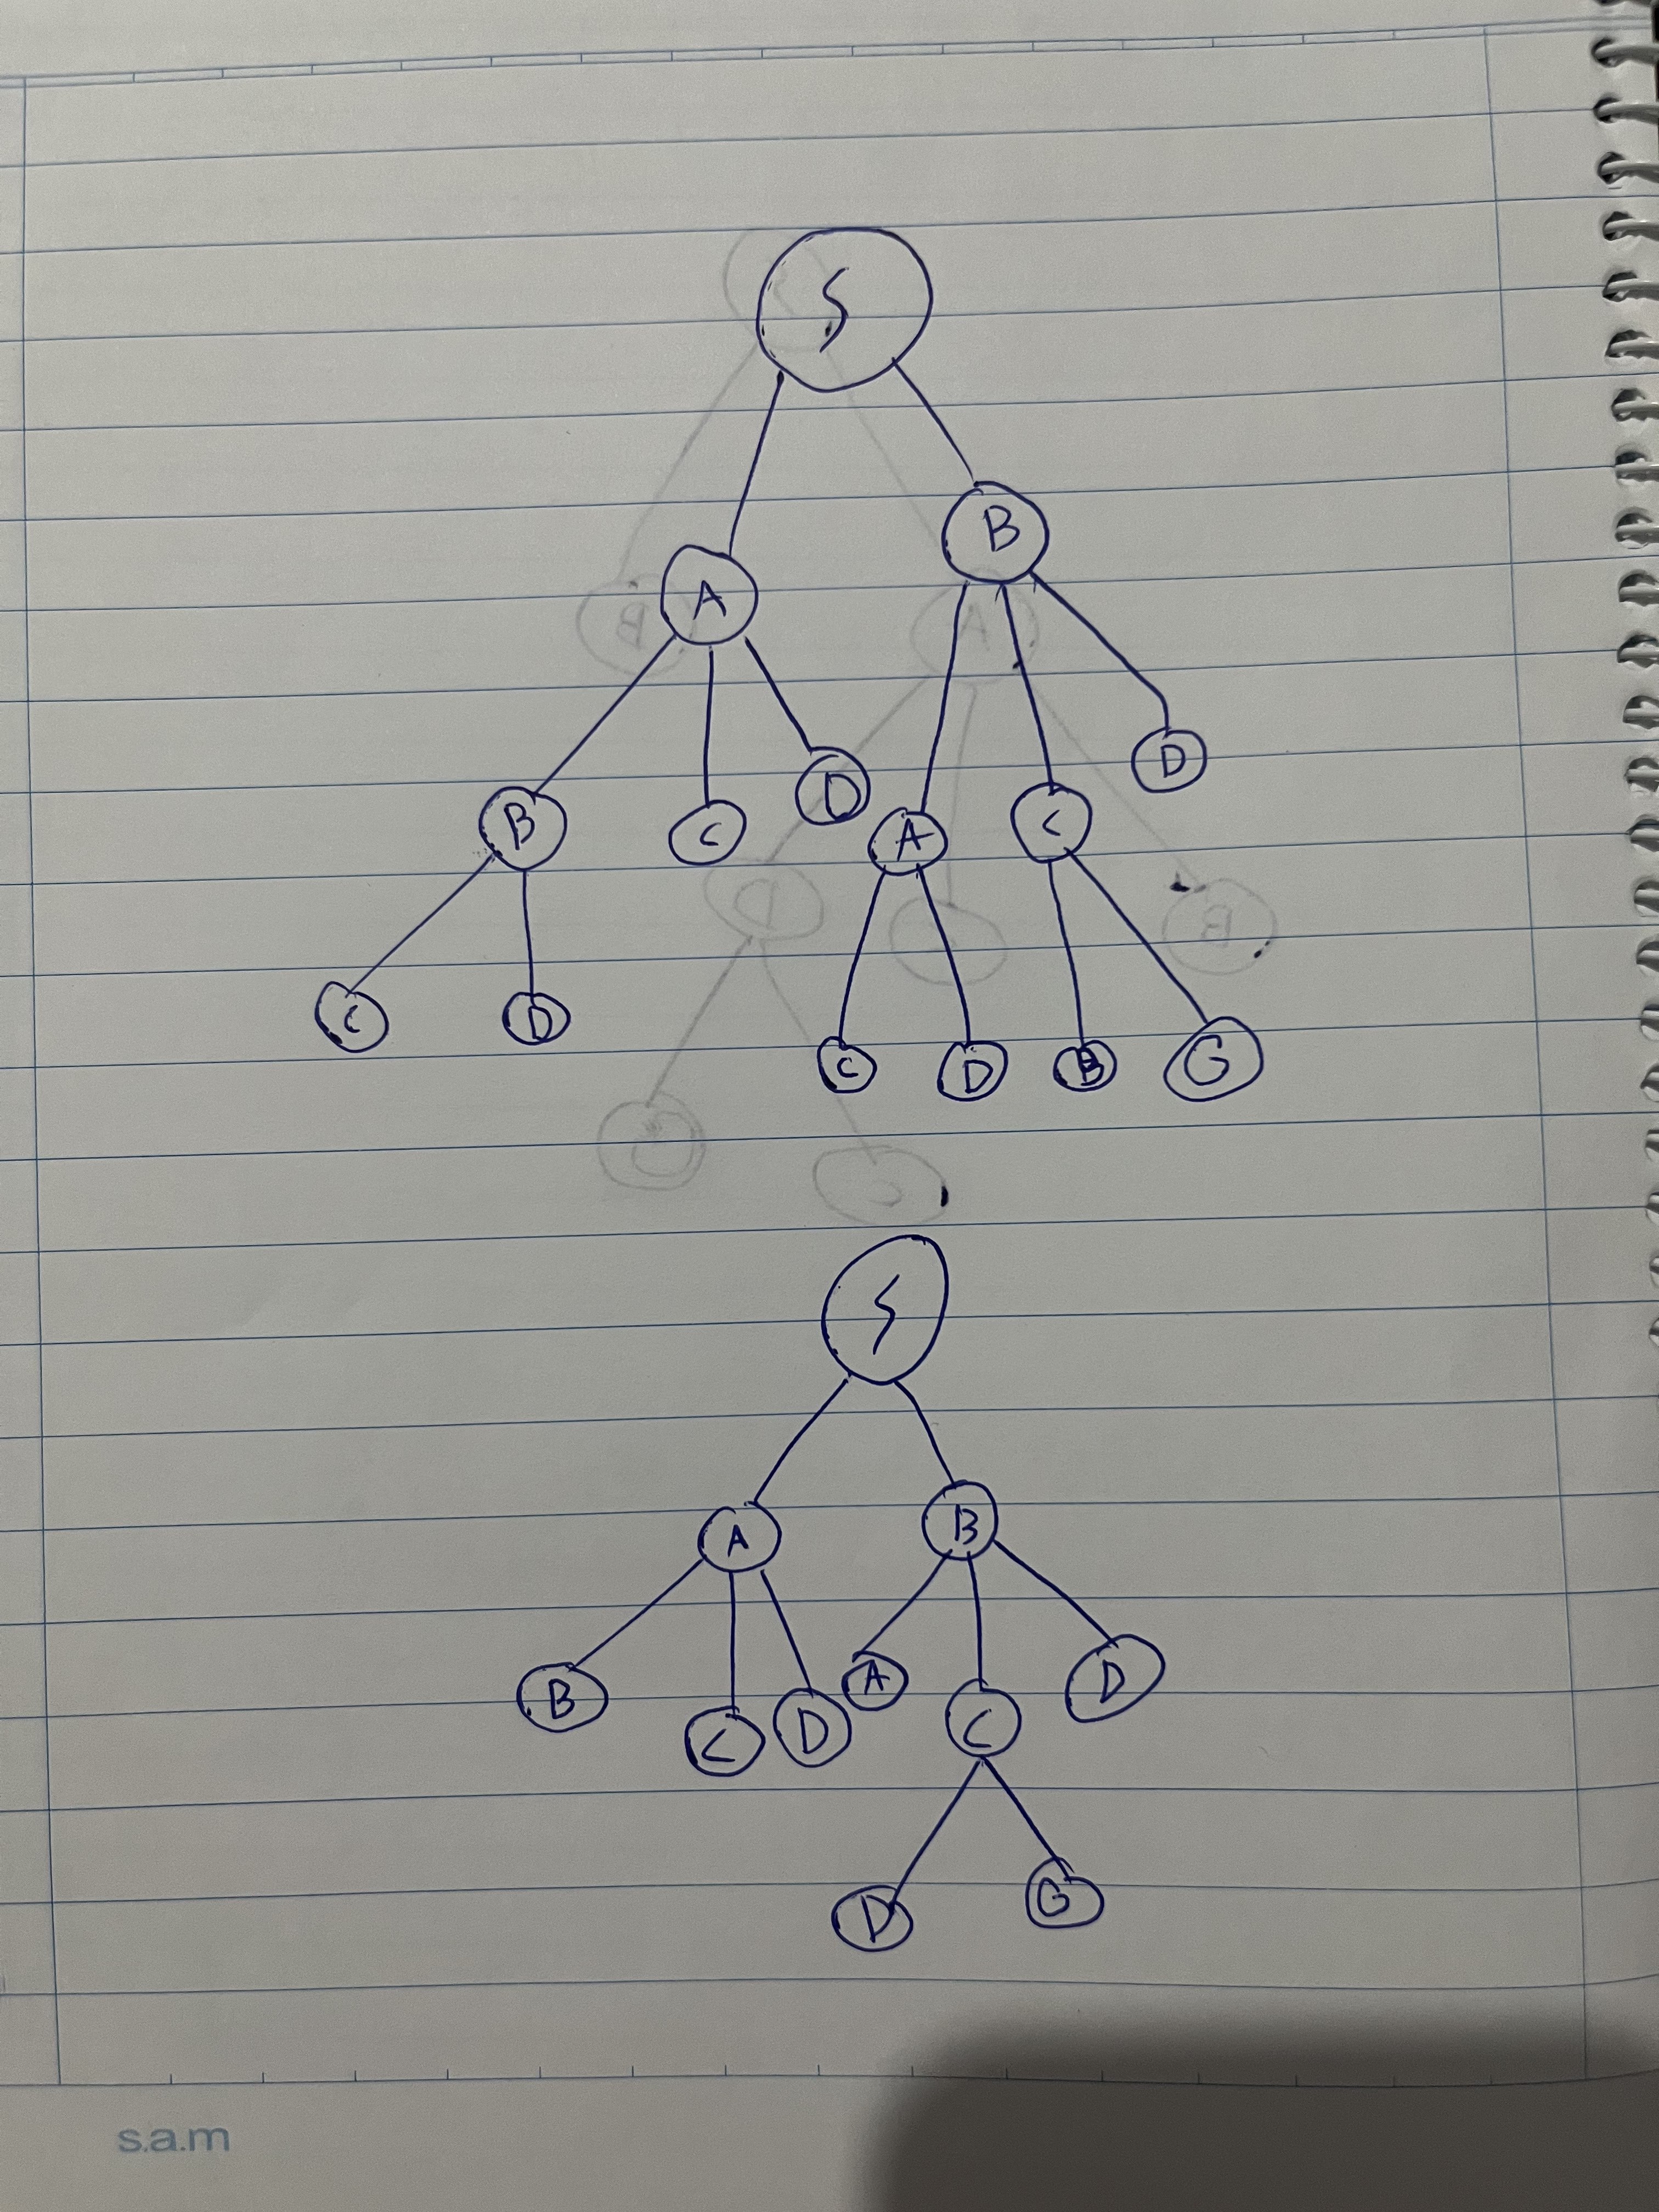 S
A B
B C D A C D
C D C D B G
S
A B
B C D A C D
D G
s.a.m